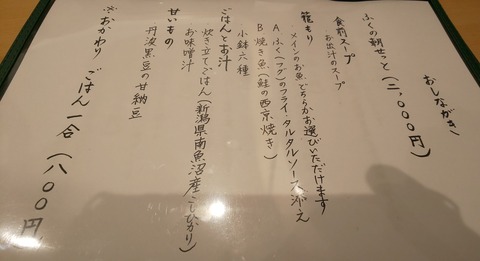 おしながき
ふくの朝せっと（二、〇〇〇円）
食前スープ
お出汁のスープ
籠もり
・メインのお魚どちらかお選びいただけます
A ふく（フグ）のフライ・タルタルソース添え
B 焼き魚（鮭の西京焼き）
小鉢六種
ごはんとお汁
炊き立てごはん（新潟県南魚沼産こしひかり）
お味噌汁
甘いもの
丹波黒豆の甘納豆
※おかわり ごはん一合（八〇〇円